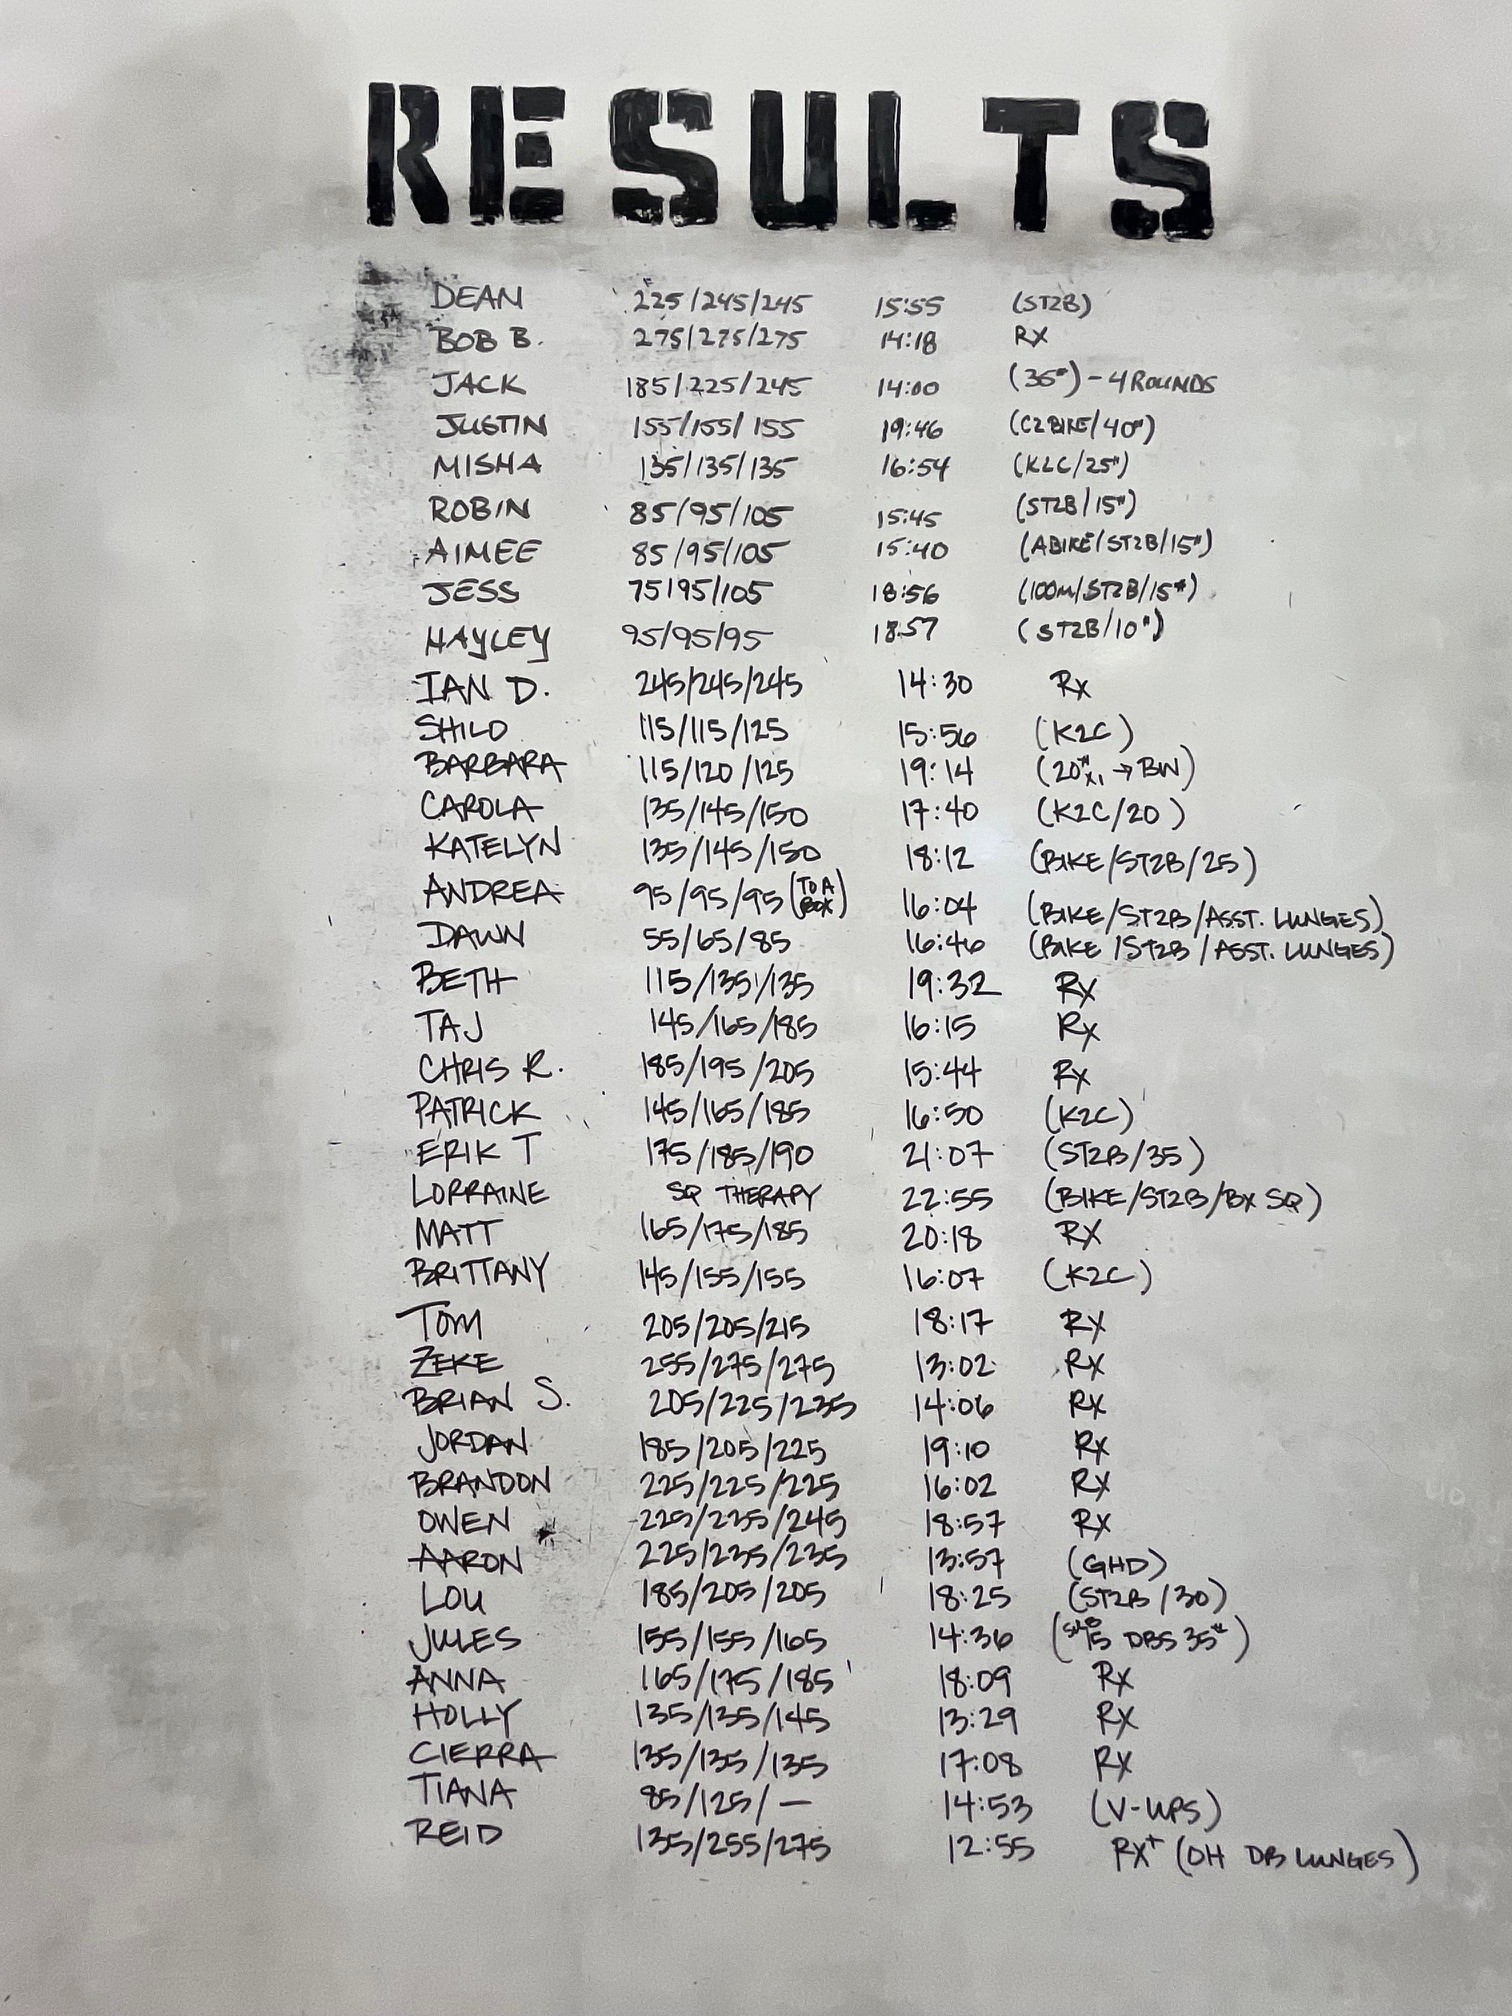 RESULTS
DEAN 225/245/245 15:55 (ST2B)
BOB B. 275/275/275 14:18 RX
JACK 185/225/245 14:00 (35#) - 4 ROUNDS
JUSTIN 155/155/155 19:46 (C2 BIKE/40#)
MISHA 135/135/135 16:54 (K2C/25#)
ROBIN 85/95/105 15:45 (ST2B/15#)
AIMEE 85/95/105 15:40 (ABIKE/ST2B/15#)
JESS 75/95/105 18:56 (100M/ST2B/15#)
HAYLEY 95/95/95 18:57 (ST2B/10#)
IAN D. 245/245/245 14:30 RX
SHILO 115/115/125 15:56 (K2C)
BARBARA 115/120/125 19:14 (20# x1 → BW)
CAROLA 135/145/150 17:40 (K2C/20)
KATELYN 135/145/150 18:12 (BIKE/ST2B/25)
ANDREA 95/95/95 (TO A BOX) 16:04 (BIKE/ST2B/ASST. LUNGES)
DAWN 55/65/85 16:46 (BIKE/ST2B/ASST. LUNGES)
BETH 115/135/135 19:32 RX
TAJ 145/165/185 16:15 RX
CHRIS R. 185/195/205 15:44 RX
PATRICK 145/165/185 16:50 (K2C)
ERIK T 175/185/190 21:07 (ST2B/35)
LORRAINE SQ THERAPY 22:55 (BIKE/ST2B/BX SQ)
MATT 165/175/185 20:18 RX
BRITTANY 145/155/155 16:07 (K2C)
TOM 205/205/215 18:17 RX
ZEKE 255/275/275 13:02 RX
BRIAN S. 205/225/235 14:06 RX
JORDAN 185/205/225 19:10 RX
BRANDON 225/225/225 16:02 RX
OWEN 225/235/245 18:57 RX
AARON 225/235/235 13:57 (GHD)
LOU 185/205/205 18:25 (ST2B/30)
JULES 155/155/165 14:36 (SUB 15 DBS 35#)
ANNA 165/175/185 18:09 RX
HOLLY 135/135/145 13:29 RX
CIERRA 135/135/135 17:08 RX
TIANA 85/125/— 14:53 (V-UPS)
REID 135/255/275 12:55 RX+ (OH DB LUNGES)